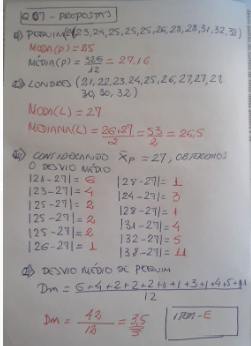 Q07 - PROPOSTAS
PEQUIM (21,23,24,25,25,25,26,28,28,31,32,38)
MODA(P) = 25
MÉDIA(P) = = 27,16
12
LONDRES (21,22,23,24,25,26,27,27,27,
30,30,32)
MODA(L) = 27
MEDIANA(L) = 26+27 = 53 = 26,5
2 2
CONSIDERANDO X̄p = 27, OBTEREMOS
O DESVIO MÉDIO
|21-27| = 6 |28-27| = 1
|23-27| = 4 |24-27| = 3
|25-27| = 2 |28-27| = 1
|25-27| = 2 |31-27| = 4
|25-27| = 2 |32-27| = 5
|26-27| = 1 |38-27| = 11
DESVIO MÉDIO DE PEQUIM
Dm = 6+4+2+2+2+1+1+3+1+4+5+11
12
Dm = 42 = 3,5
12
ITEM-E